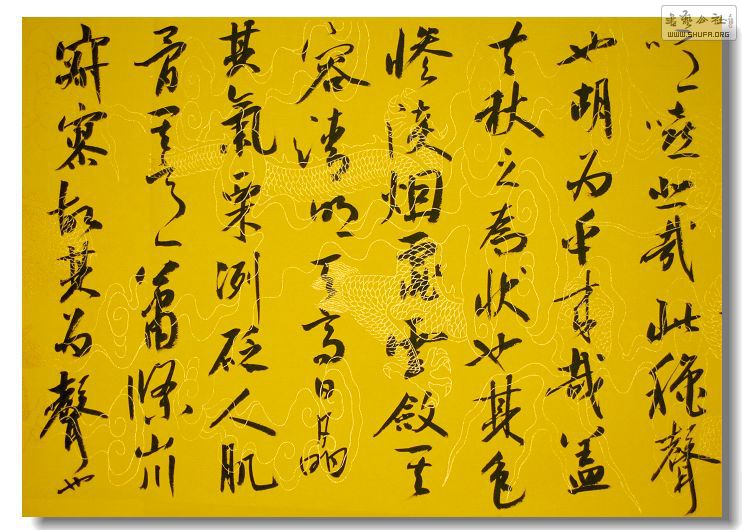 噫嘻悲哉此穐聲
也胡为乎来哉盖
夫秋之為状也其色
惨淡烟霏雲斂其
容清明天高日晶
其氣栗冽砭人肌
骨其意蕭條山川
寂寥故其为聲也
书艺公社
WWW.SHUFA.ORG